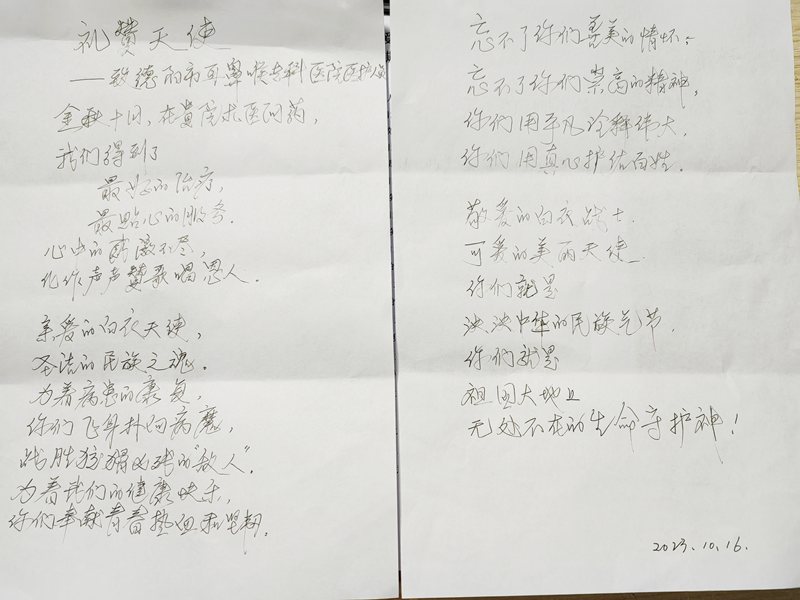 礼赞天使
——致德阳市耳鼻喉专科医院医护人员
金秋十月，在贵院求医问药，
我们得到了
最好的治疗，
最贴心的服务．
心中的感激不尽，
化作声声赞歌唱恩人．
亲爱的白衣天使，
圣洁的民族之魂．
为着病患的康复，
你们飞身扑向病魔，
战胜狡猾凶残的"敌人"．
为着我们的健康快乐，
你们奉献青春热血和坚韧．
忘不了你们善美的情怀；
忘不了你们崇高的精神，
你们用平凡诠释伟大，
你们用真心护佑百姓．
敬爱的白衣战士
可爱的美丽天使
你们就是
泱泱中华的民族气节．
你们就是
祖国大地上
无处不在的生命守护神！
2023.10.16.